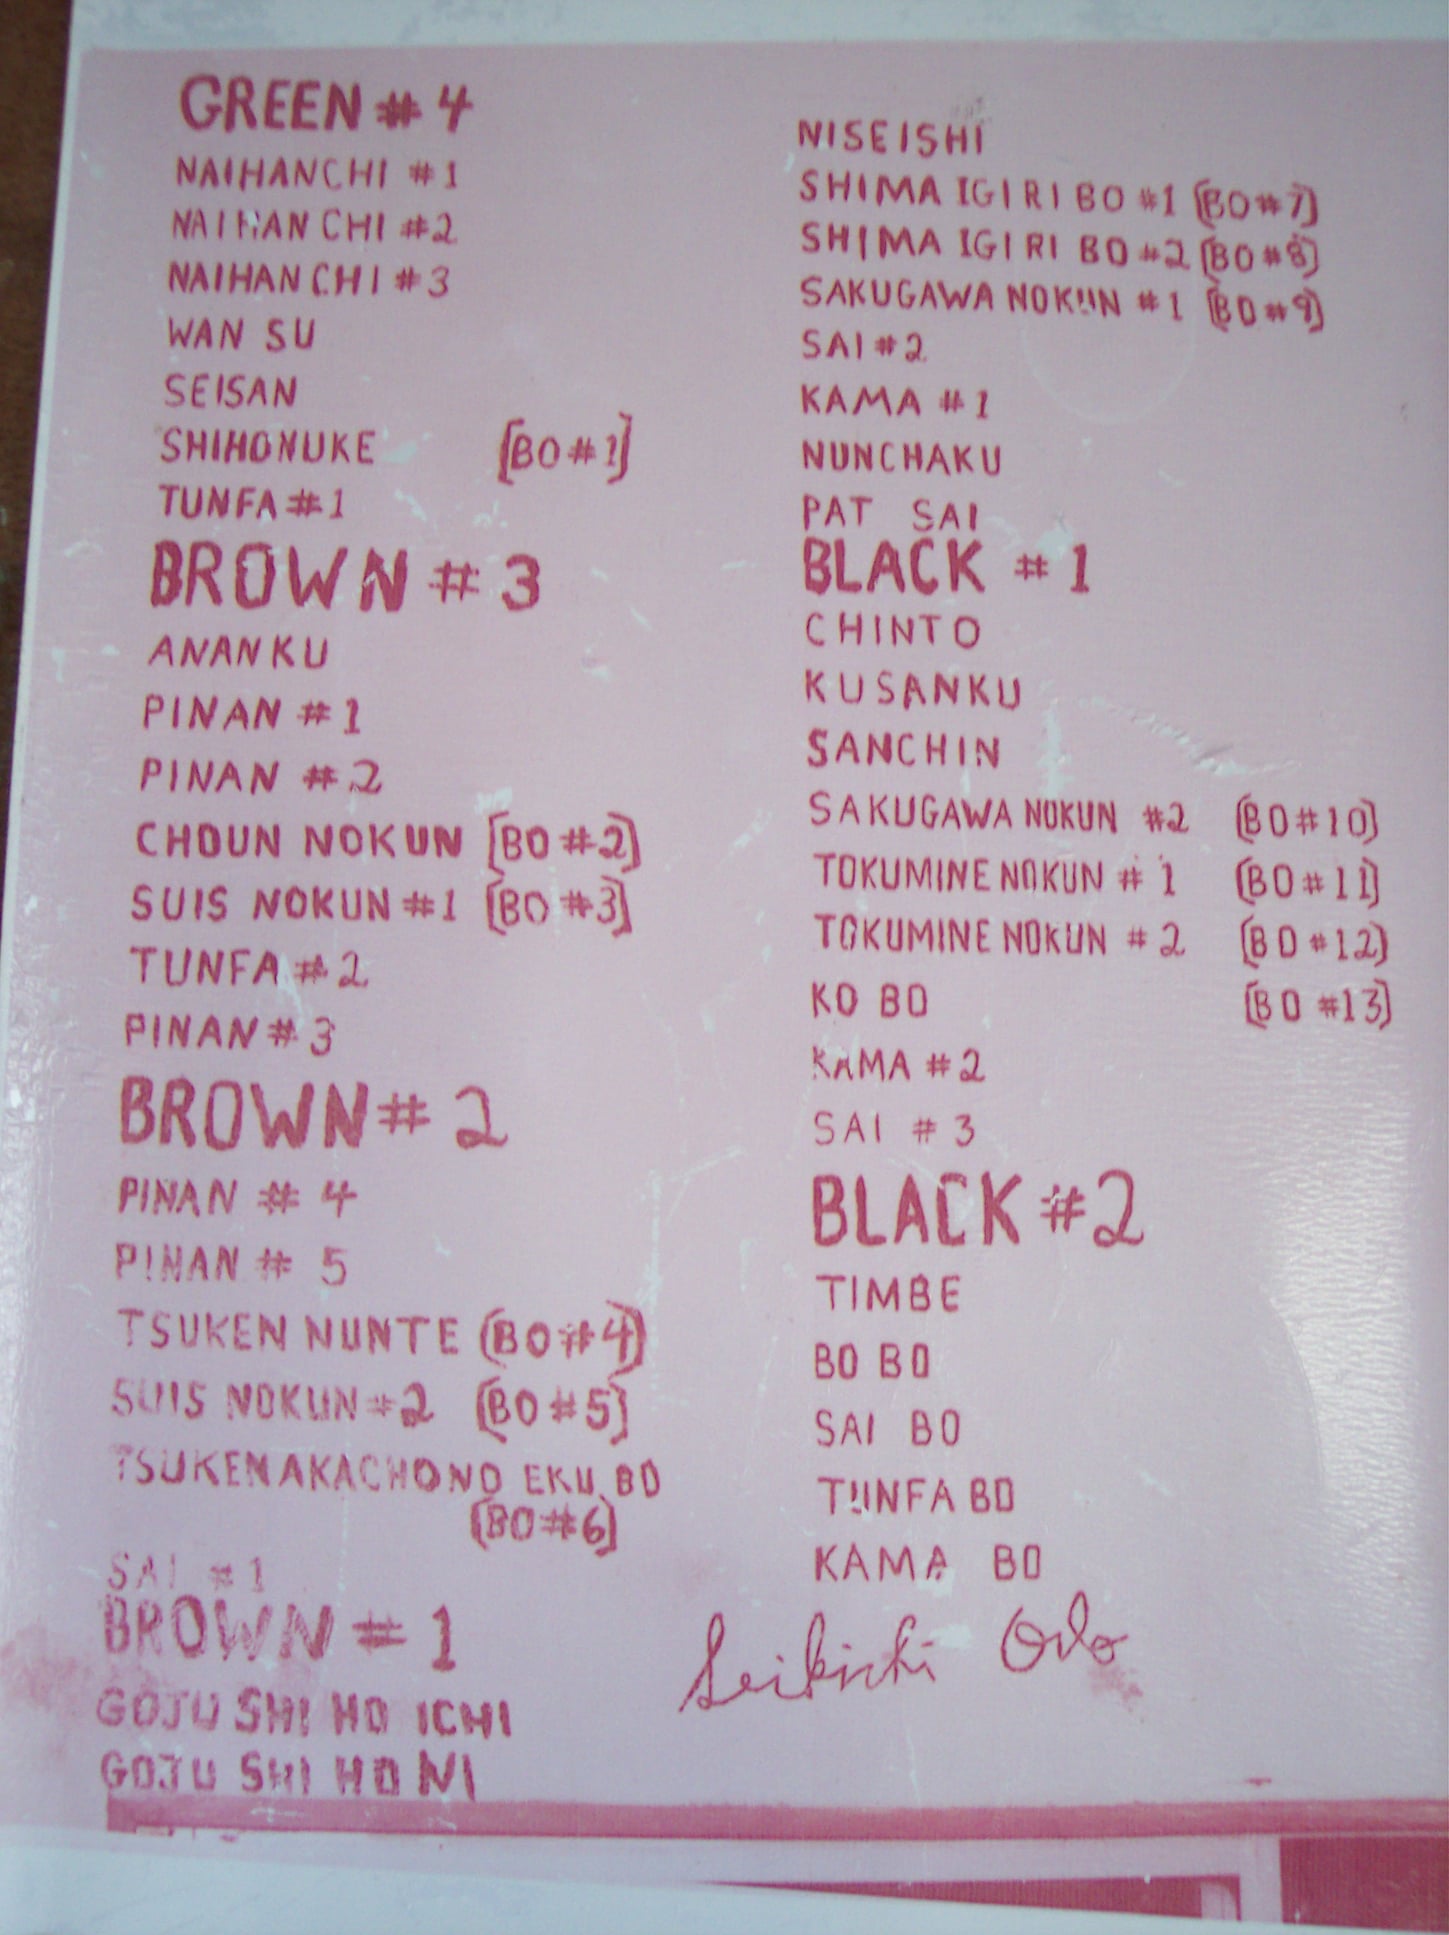 GREEN # 4
NAIHANCHI # 1
NAIHANCHI #2
NAIHANCHI # 3
WAN SU
SEISAN
SHIHONUKE [BO # 1]
TUNFA # 1
BROWN # 3
ANANKU
PINAN # 1
PINAN # 2
CHOUN NOKUN [BO # 2]
SUIS NOKUN # 1 [BO # 3]
TUNFA # 2
PINAN # 3
BROWN # 2
PINAN # 4
PINAN # 5
TSUKEN NUNTE (BO # 4)
SUIS NOKUN # 2 [BO # 5]
TSUKENAKACHONO EKU BO
[BO # 6]
SAI # 1
BROWN # 1
GOJU SHI HO ICHI
GOJU SHI HO NI
NISEISHI
SHIMA IGIRI BO # 1 [BO # 7]
SHIMA IGIRI BO # 2 [BO # 8]
SAKUGAWA NOKUN # 1 [BO # 9]
SAI # 2
KAMA # 1
NUNCHAKU
PAT SAI
BLACK # 1
CHINTO
KUSANKU
SANCHIN
SAKUGAWA NOKUN #2 [BO # 10]
TOKUMINE NOKUN # 1 [BO # 11]
TOKUMINE NOKUN # 2 [BO # 12]
KO BO [BO # 13]
KAMA # 2
SAI # 3
BLACK # 2
TIMBE
BO BO
SAI BO
TUNFA BO
KAMA BO
Seikichi Odo